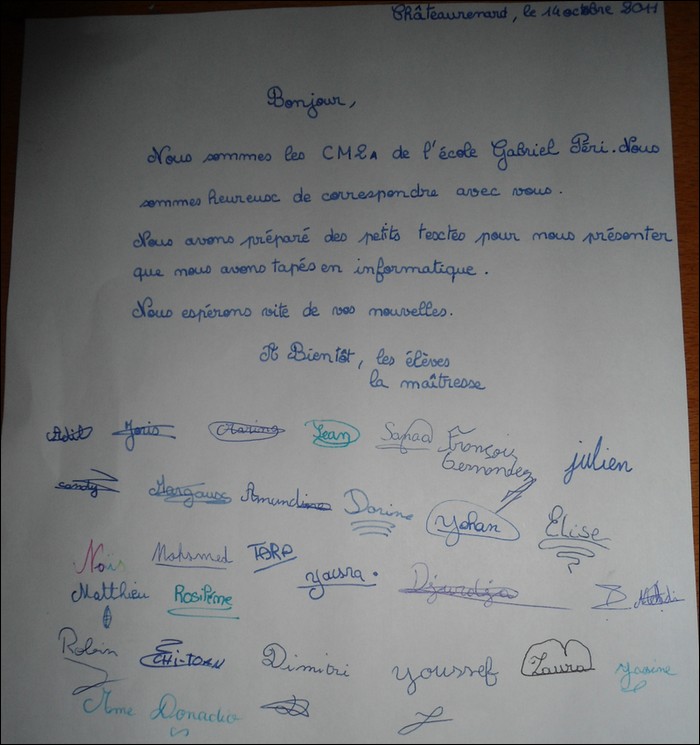 Châteaurenard, le 14 octobre 2011
Bonjour,
Nous sommes les CM2A de l'école Gabriel Péri. Nous
sommes heureux de correspondre avec vous.
Nous avons préparé des petits textes pour nous présenter
que nous avons tapés en informatique.
Nous espérons vite de vos nouvelles.
A Bientôt, les élèves
la maîtresse
Adil Joris Marine Jean Safaa François julien
sandy Margaux Dorine Yohan Élise
Mohamed TARA yousra Djurdja
Matthieu
Robin CHI-TOAN Dimitri youssef Laura yacine
Mme Donadio